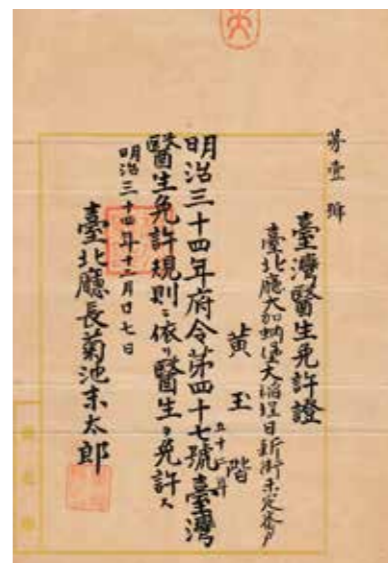 第壹號
臺灣醫生免許證
臺北廳大加蚋堡大稻埕日新街未定番戶
黃玉階
明治三十四年府令第四十七號臺灣
醫生免許規則ニ依リ醫生ヲ免許ス
明治三十四年十二月廿七日
臺北廳長菊池末太郎